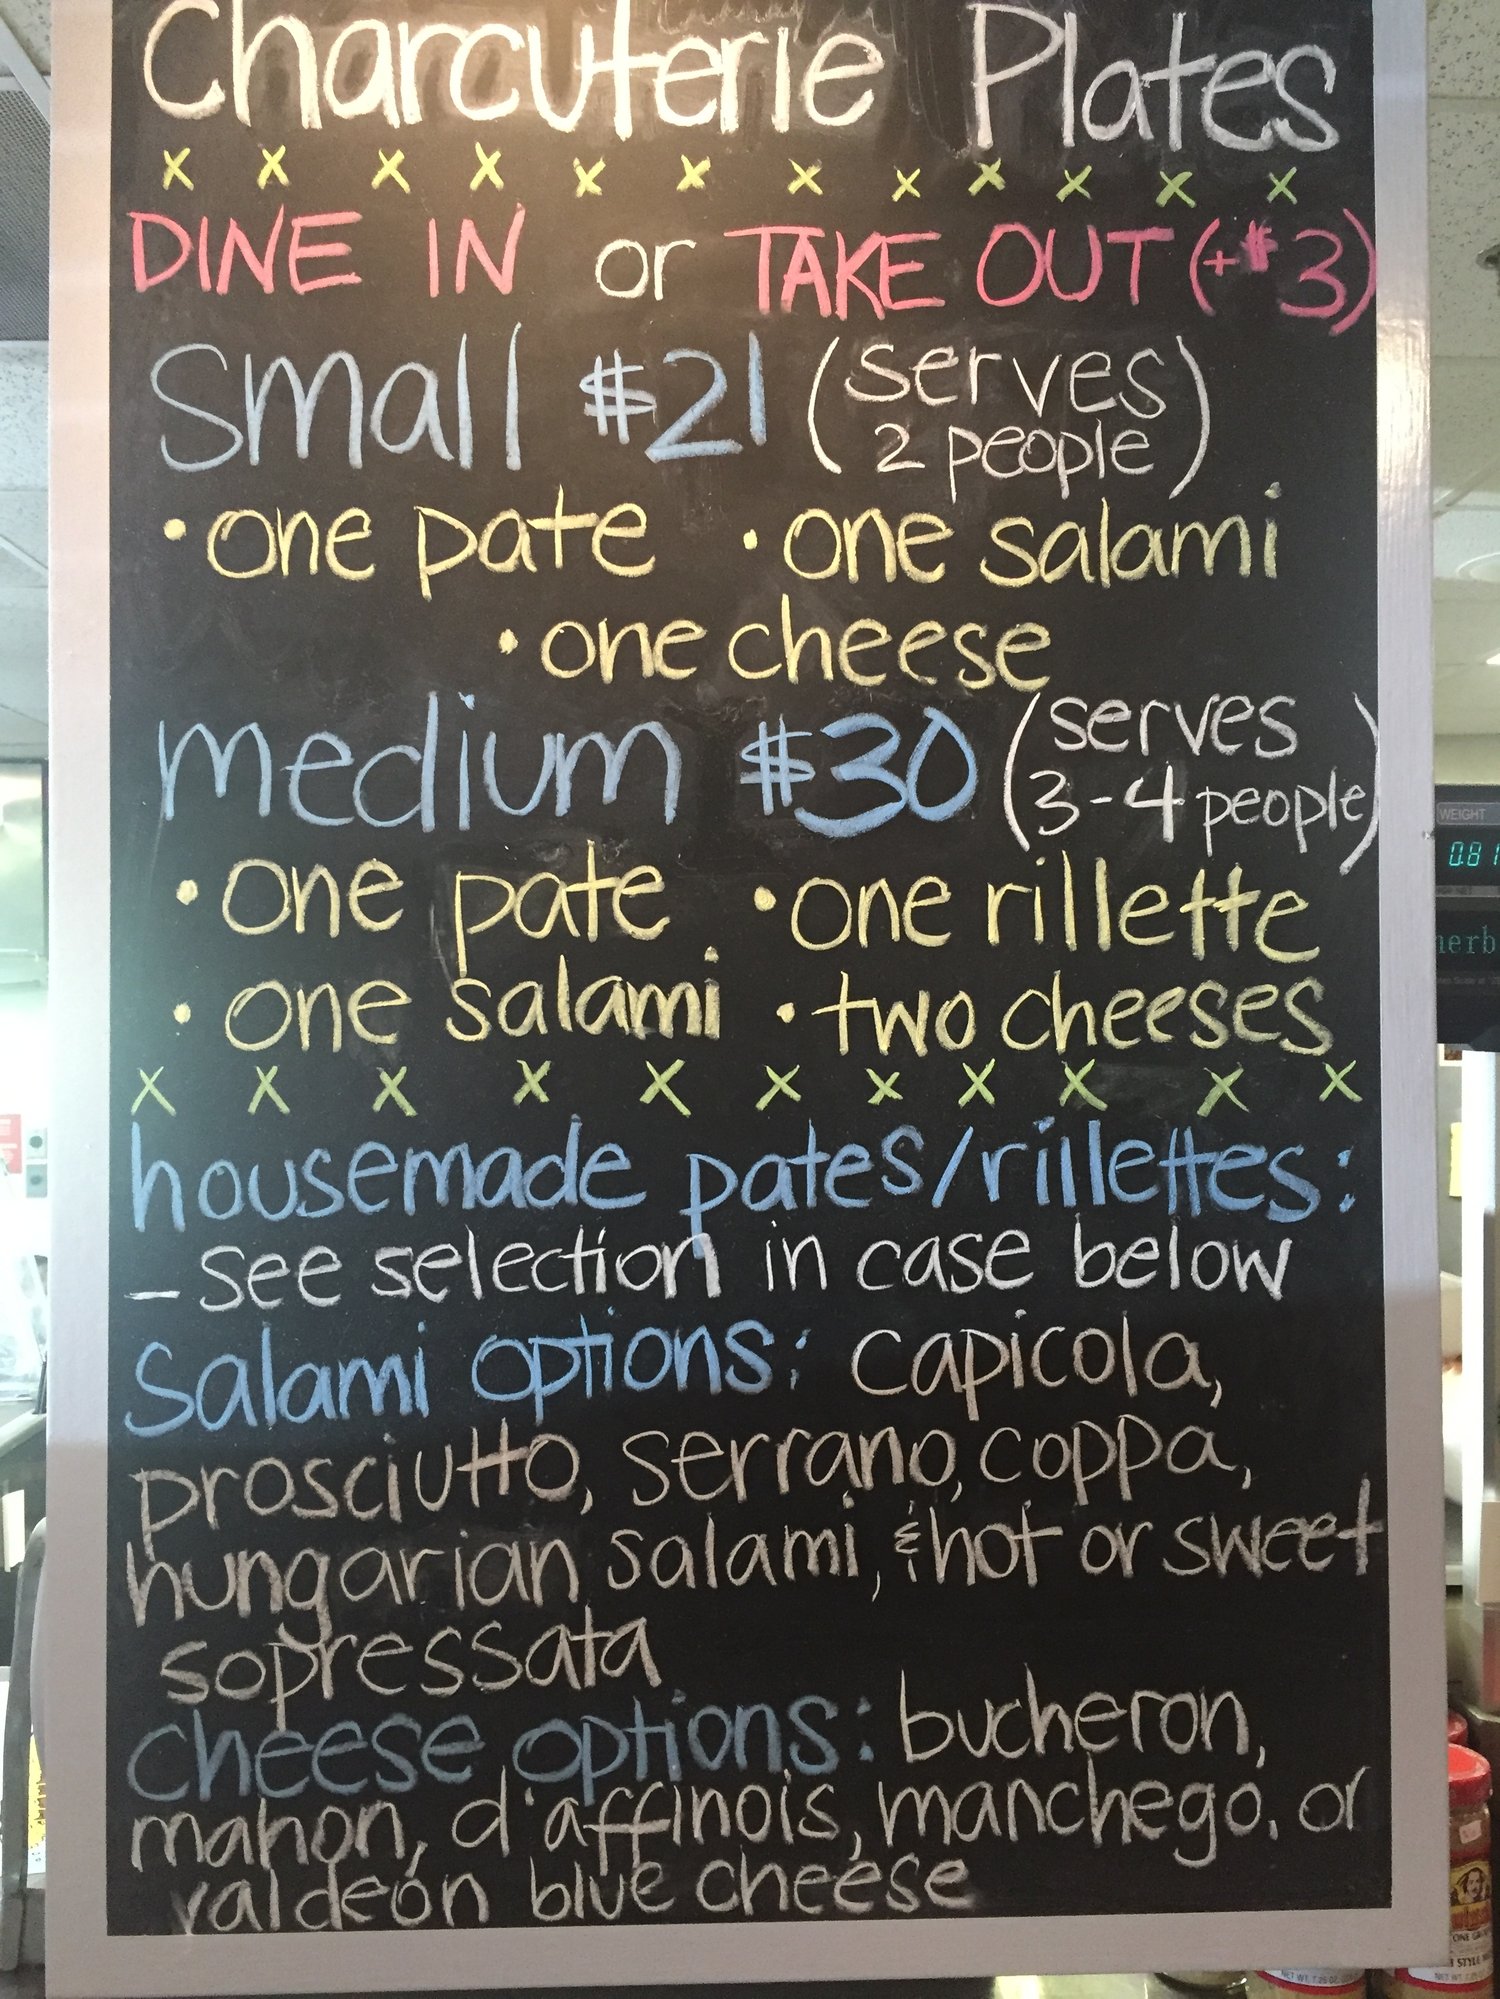 Charcuterie Plates
x x x x x x x x x x x x
DINE IN or TAKE OUT (+$3)
Small $21 (serves
2 people)
• one pate • one salami
• one cheese
medium $30 (serves
3-4 people)
• one pate • one rillette
• one salami • two cheeses
x x x x x x x x x x x
housemade pates/rillettes:
- see selection in case below
Salami options: capicola,
prosciutto, serrano, coppa,
hungarian salami, & hot or sweet
sopressata
Cheese options: bucheron,
mahon, d'affinois, manchego, or
valdeón blue cheese
WEIGHT
0.81
herb